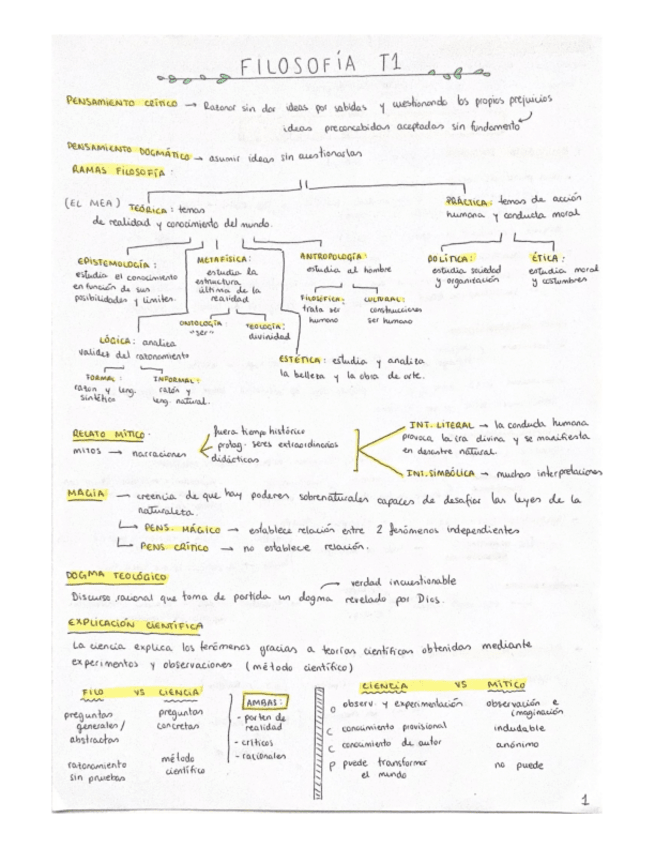 FILOSOFÍA T1
PENSAMIENTO CRÍTICO → Razonar sin dar ideas por sabidas y cuestionando los propios prejuicios
ideas preconcebidas aceptadas sin fundamento
PENSAMIENTO DOGMÁTICO → asumir ideas sin cuestionarlas
RAMAS FILOSOFÍA:
(EL MEA) TEÓRICA: temas
de realidad y conocimiento del mundo.
PRÁCTICA: temas de acción
humana y conducta moral
EPISTEMOLOGÍA:
estudia el conocimiento
en función de sus
posibilidades y límites.
METAFÍSICA:
estudia la
estructura
última de la
realidad
ANTROPOLOGÍA:
estudia al hombre
POLÍTICA:
estudia sociedad
y organización
ÉTICA:
estudia moral
y costumbres
FILOSÓFICA:
trata ser
humano
CULTURAL:
construcciones
ser humano
ONTOLOGÍA:
"ser"
TEOLOGÍA:
divinidad
LÓGICA: analiza
validez del razonamiento
ESTÉTICA: estudia y analiza
la belleza y la obra de arte.
FORMAL:
razón y leng.
sintético
INFORMAL:
razón y
leng. natural.
RELATO MÍTICO:
mitos → narraciones
fuera tiempo histórico
protag. seres extraordinarios
didácticos
INT. LITERAL → la conducta humana
provoca la ira divina y se manifiesta
en desastre natural.
INT. SIMBÓLICA → muchas interpretaciones
MAGIA — creencia de que hay poderes sobrenaturales capaces de desafiar las leyes de la
naturaleza.
PENS. MÁGICO → establece relación entre 2 fenómenos independientes
PENS CRÍTICO → no establece relación.
DOGMA TEOLÓGICO
→ verdad incuestionable
Discurso racional que toma de partida un dogma revelado por Dios.
EXPLICACIÓN CIENTÍFICA
La ciencia explica los fenómenos gracias a teorías científicas obtenidas mediante
experimentos y observaciones (método científico)
FILO VS CIENCIA
preguntas
generales/
abstractas
preguntas
concretas
razonamiento
sin pruebas
método
científico
AMBAS:
- parten de
realidad
- críticos
- racionales
CIENCIA VS MÍTICO
O observ. y experimentación
observación e
imaginación
C conocimiento provisional
indudable
C conocimiento de autor
anónimo
P puede transformar
el mundo
no puede
1